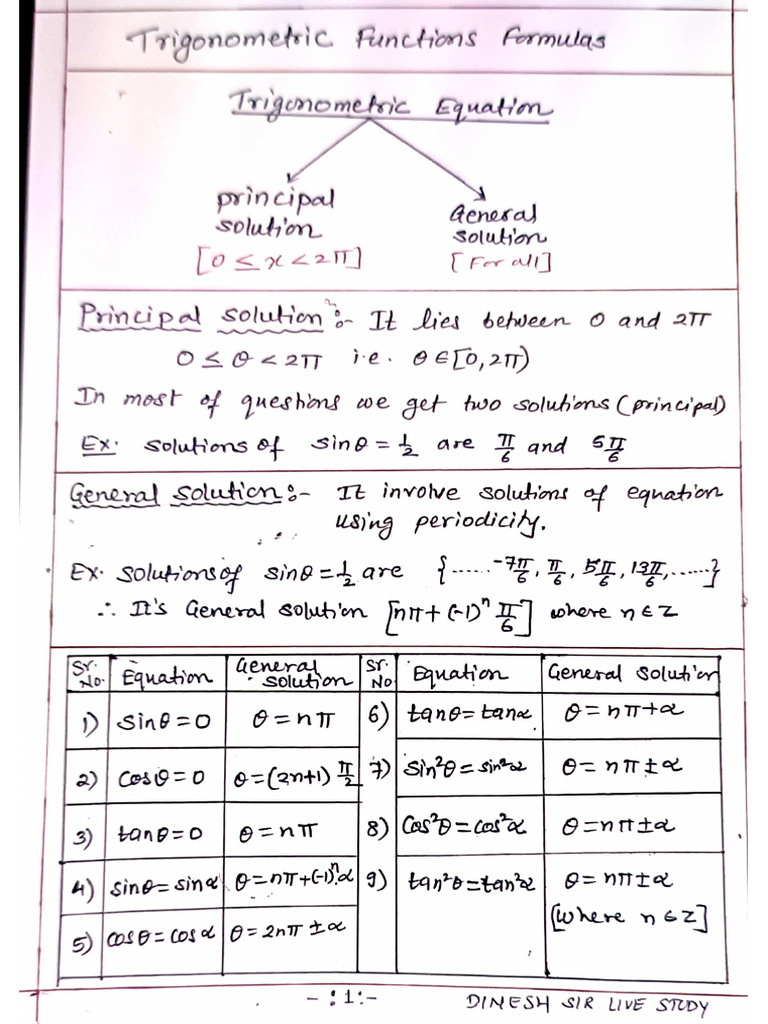 Trigonometric Functions Formulas
Trigonometric Equation
principal solution
[0 ≤ x < 2π]
General solution
[For all]
Principal solution :- It lies between 0 and 2π
0 ≤ θ < 2π i.e. θ ∈ [0, 2π)
In most of questions we get two solutions (principal)
Ex. solutions of sinθ = 1/2 are π/6 and 5π/6
General solution :- It involve solutions of equation
using periodicity.
Ex. solutions of sinθ = 1/2 are {...... -7π/6, π/6, 5π/6, 13π/6, ......}
∴ It's General solution [nπ + (-1)ⁿ π/6] where n ∈ Z
Sr. No. Equation General solution Sr. No Equation General solution
1) sinθ = 0 θ = nπ 6) tanθ = tanα θ = nπ + α
2) cosθ = 0 θ = (2n+1) π/2 7) sin²θ = sin²α θ = nπ ± α
3) tanθ = 0 θ = nπ 8) cos²θ = cos²α θ = nπ ± α
4) sinθ = sinα θ = nπ + (-1)ⁿ.α 9) tan²θ = tan²α θ = nπ ± α
5) cosθ = cosα θ = 2nπ ± α [where n ∈ Z]
- : 1 : - DINESH SIR LIVE STUDY